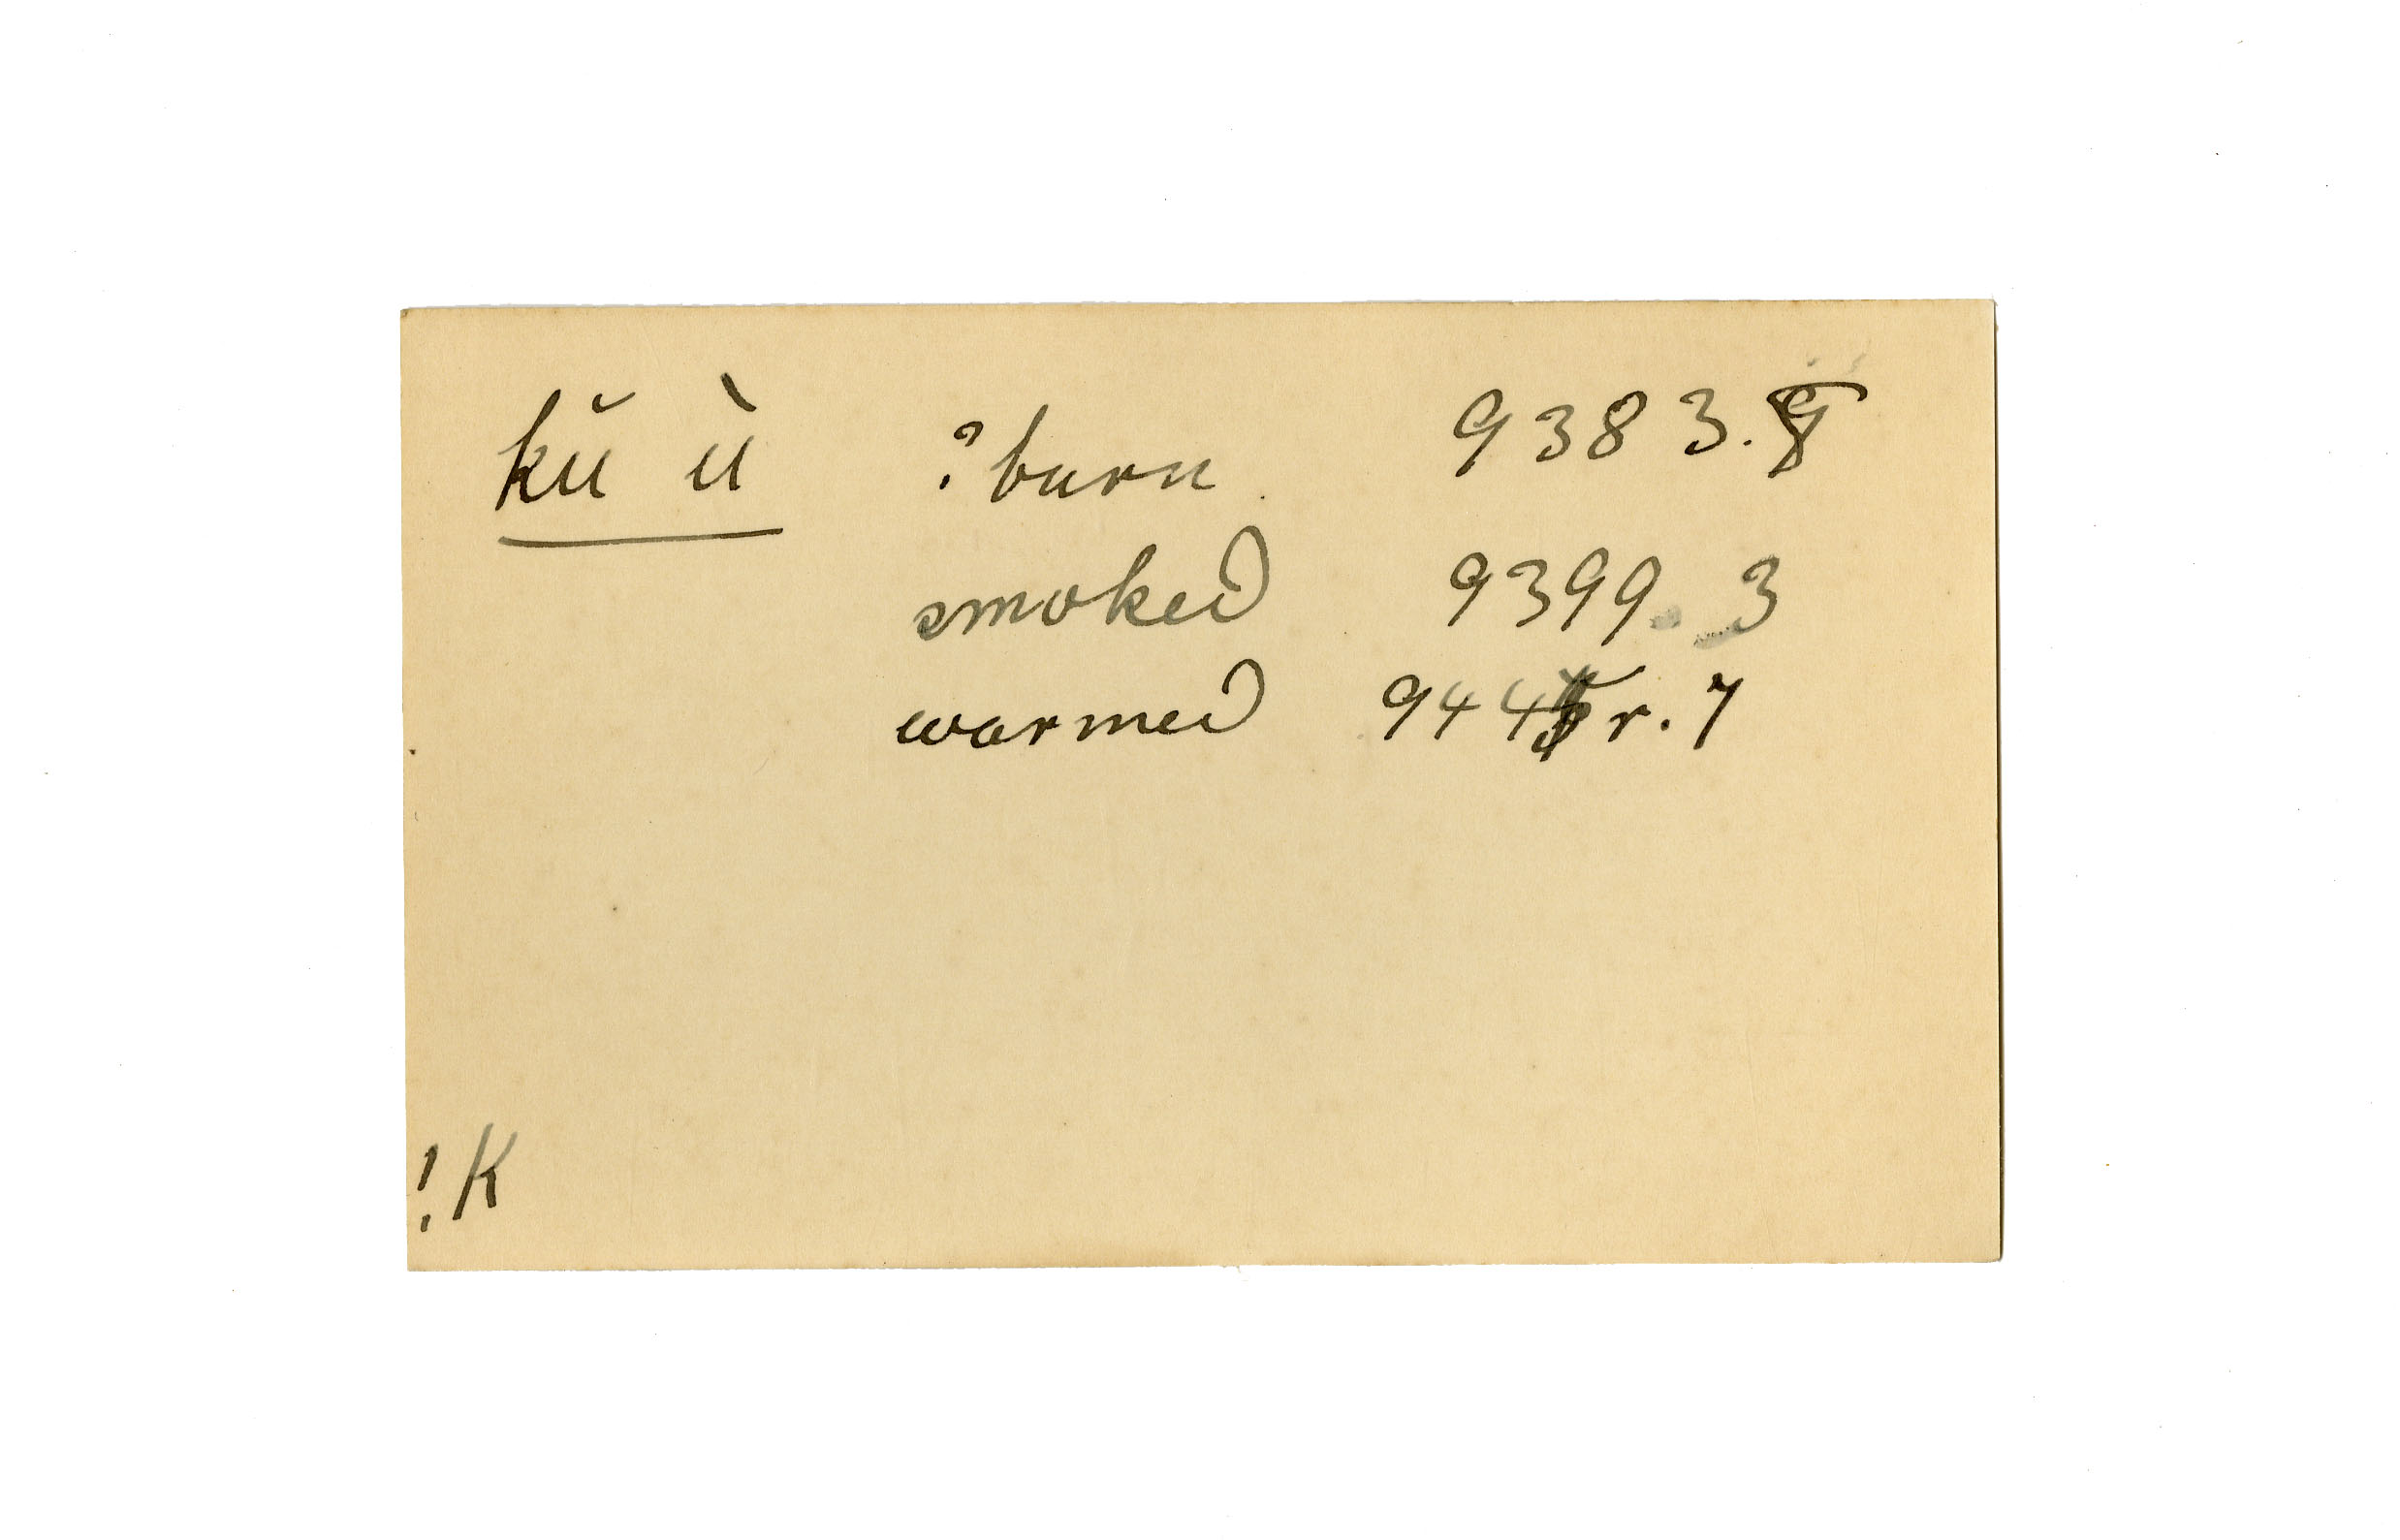 kŭ ù ?burn 9383.
smoked 9399. 3
warmed 9445r. 7
!K